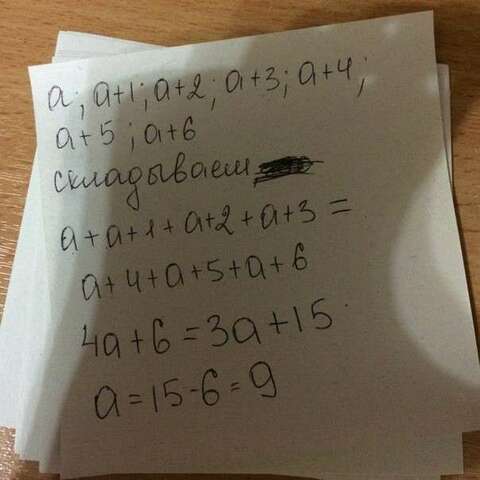 a; a+1; a+2; a+3; a+4;
a+5; a+6
складываем
a+a+1+a+2+a+3=
a+4+a+5+a+6
4a+6=3a+15
a=15-6=9